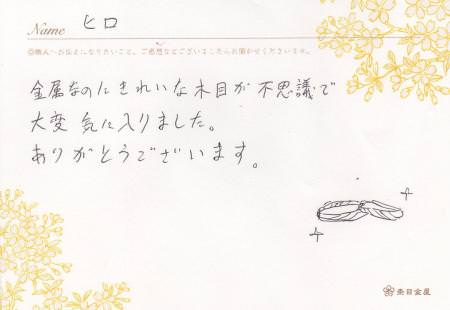 Name ヒロ
◎職人へお伝えになりたいこと、ご感想などございましたらお聞かせくださいませ。
金属なのにきれいな木目が不思議で
大変気に入りました。
ありがとうございます。
杢目金屋